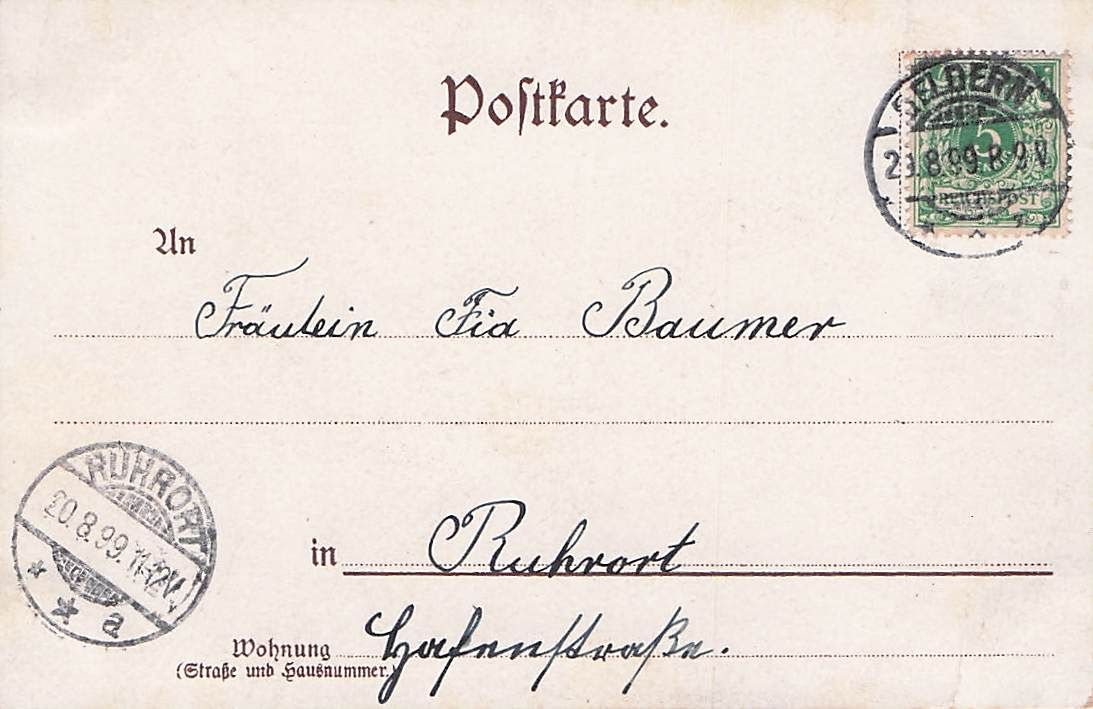 Postkarte.
GELDERN
20.8.99. 8-9V.
5
REICHSPOST
An
Fräulein Fia Baumer
RUHRORT
20.8.99. 11-12V.
a
in Ruhrort
Wohnung Hafenstraße.
(Straße und Hausnummer.)